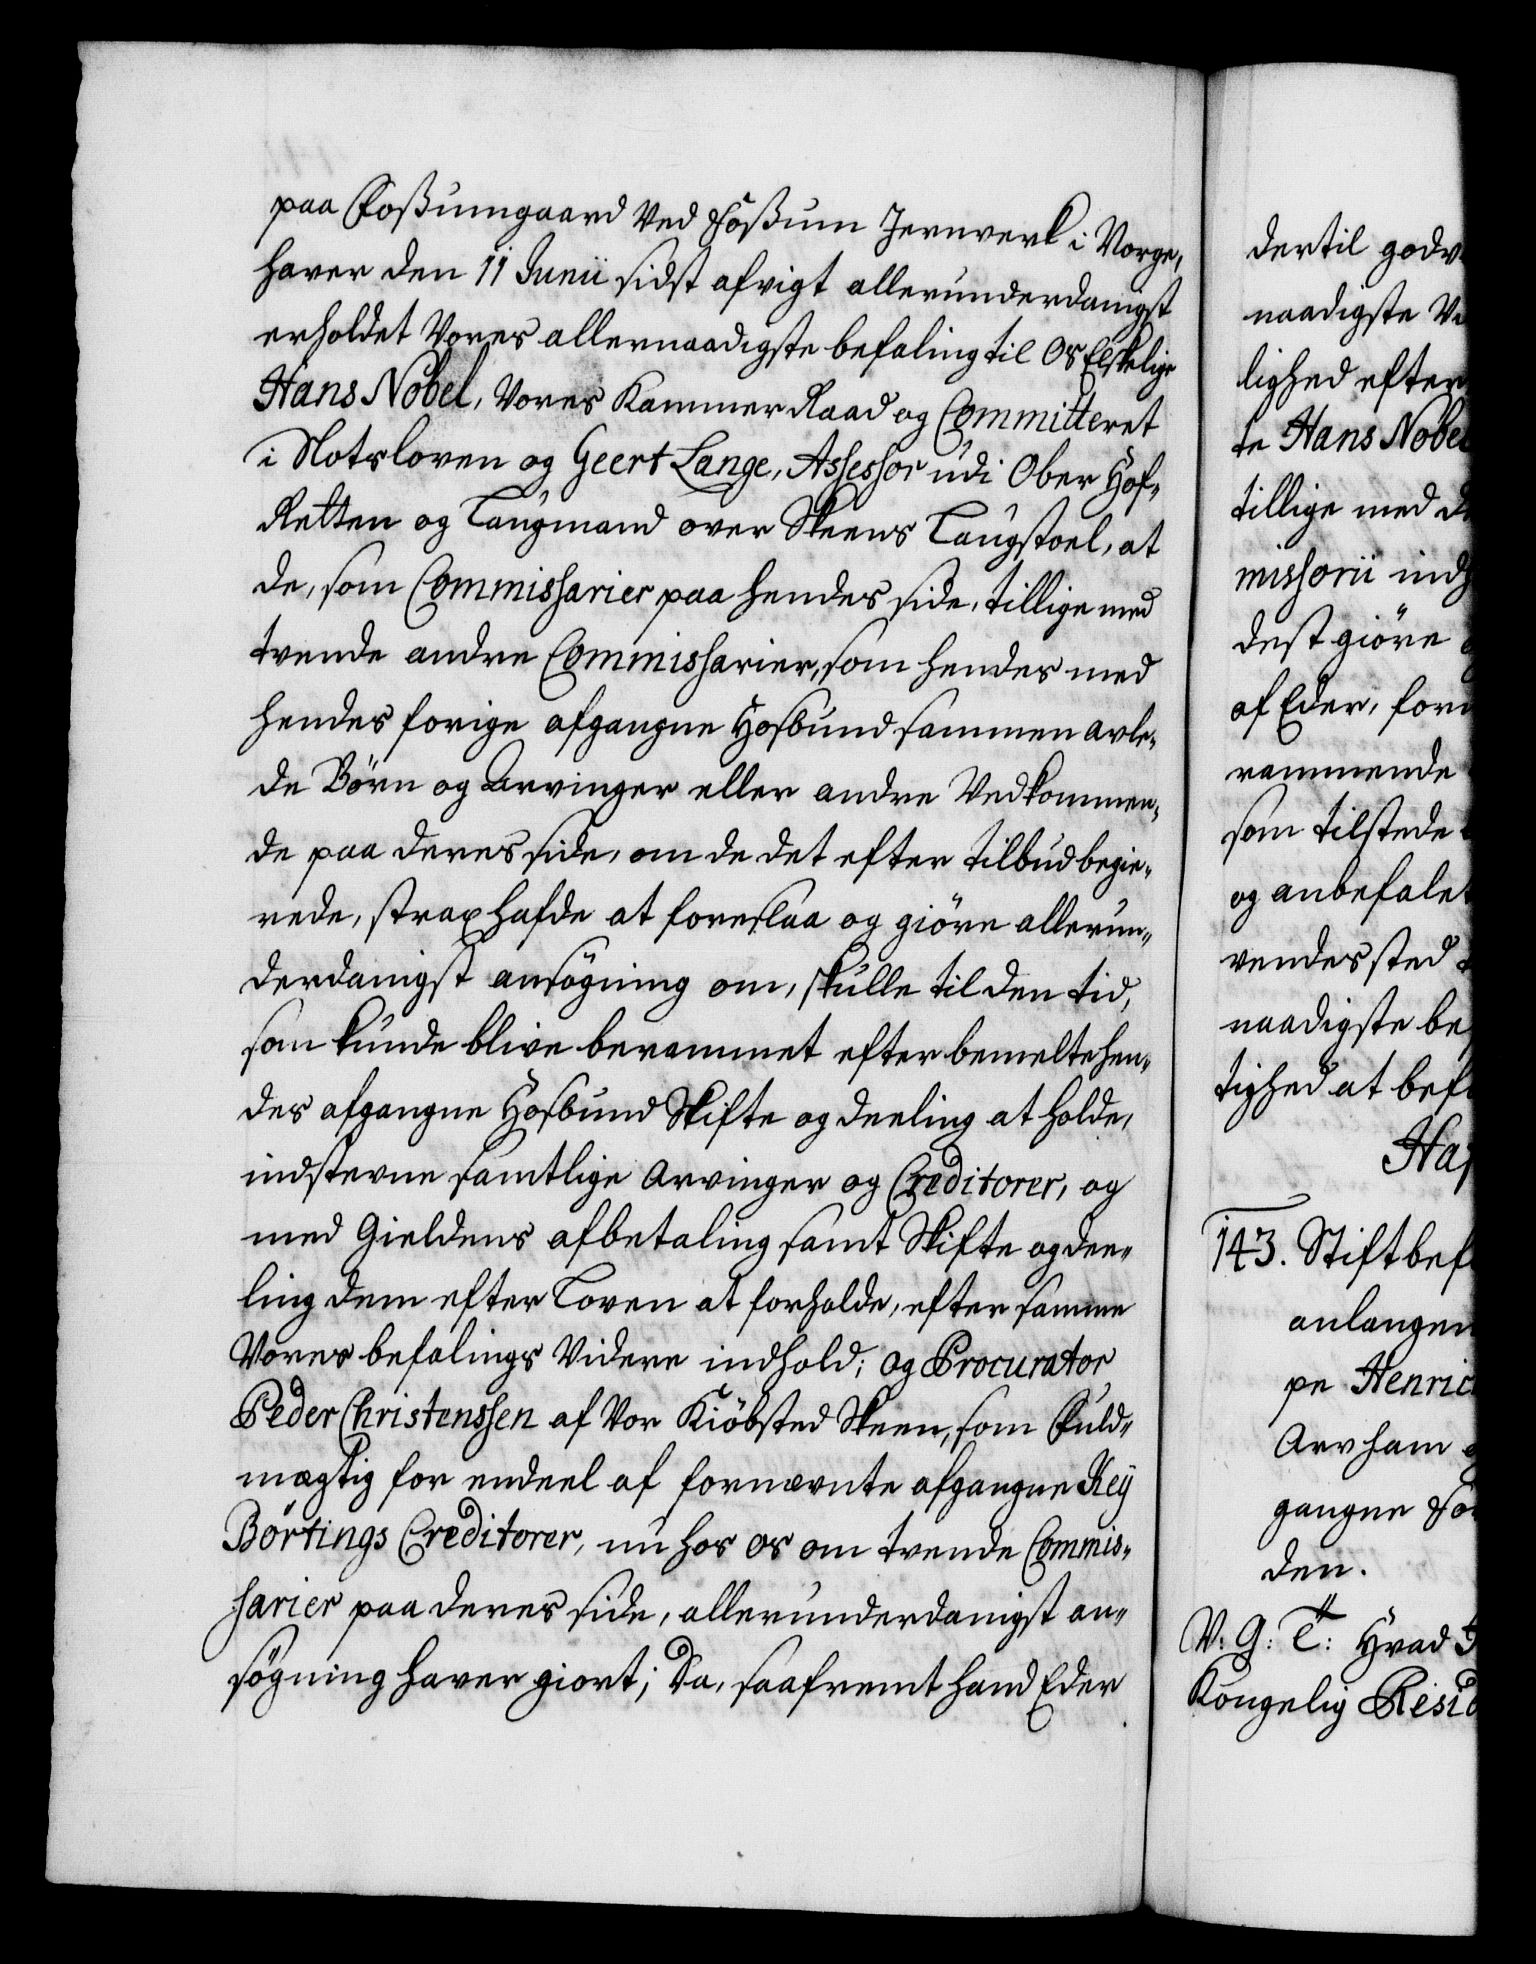 paa Foßumgaard Ved Foßum Jernverk i Norge,
haver den 11 Junii sidst afvigt allerunderdanigst
erholdet Vores allernaadigste befaling til Os Elskelige
Hans Nobel, Vores Kammer Raad og Committeret
i Slotsloven og Geert Lange, Assessor udi Ober Hof-
Retten og Laugmand over Skeens Laugstoel, at
de, som Commissarier paa hendes side, tillige med
tvende andre Commissarier, som hendes med
hendes forige afgangne Hosbund sammen avle-
de Börn og Arvinger eller andre Vedkommen-
de paa deres side, om de det efter tilbud begie-
rede, strax hafde at foreslaa og giöre allerun-
derdanigst ansögning om, skulle til den tid,
som kunde blive berammet efter bemelte hen-
des afgangne Hosbund Skifte og deeling at holde,
indstevne samtlige Arvinger og Creditorer, og
med Gieldens afbetaling samt Skifte og dee-
ling dem efter Loven at forholde, efter samme
Vores befalings Videre indhold; og Procurator
Peder Christenssen af Vor Kiöbsted Skeen, som Fuld-
mægtig for endeel af fornævnte afgangne Key
Börtings Creditorer, nu hos os om tvende Commis-
sarier paa deres side, allerunderdanigst an-
sögning haver giort; Da, saafremt hand Eder
dertil godv
naadigste Vi
lighed efter
te Hans Nobel
tillige med d
missorii indh
dest giöre
af Eder, for
rammende
som tilstede
og anbefalet
vendes sted
naadigste be
tighed at bef
Haf
143. Stiftbef
anlangen
pe Henric
Arv ham
gangne So
den.
V: G: T: Hvad
Kongelig Resid